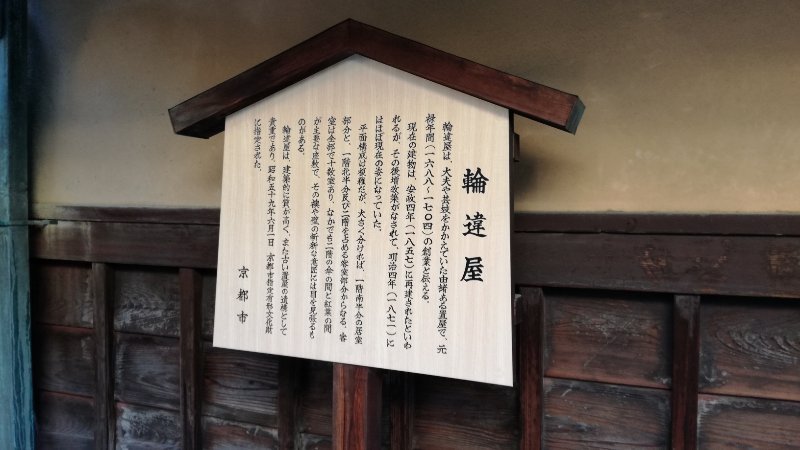 輪違屋
輪違屋は、太夫や芸妓をかかえていた由緒ある置屋で、元
禄年間(一六八八~一七〇四)の創業と伝える。
現在の建物は、安政四年(一八五七)に再建されたといわ
れるが、その後増改築がなされて、明治四年(一八七一)に
ほぼ現在の姿になっていた。
平面構成は複雑だが、大きく分ければ、一階南半分の居室
部分と、一階北半分及び二階を占める客室部分からなる。客
室は全部で十数室あり、なかでも二階の傘の間と紅葉の間
が主要な座敷で、その襖や壁の斬新な意匠には目を見張るも
のがある。
輪違屋は、建築的に質が高く、また古い置屋の遺構として
貴重であり、昭和五十九年六月一日 京都市指定有形文化財
に指定された。
京都市